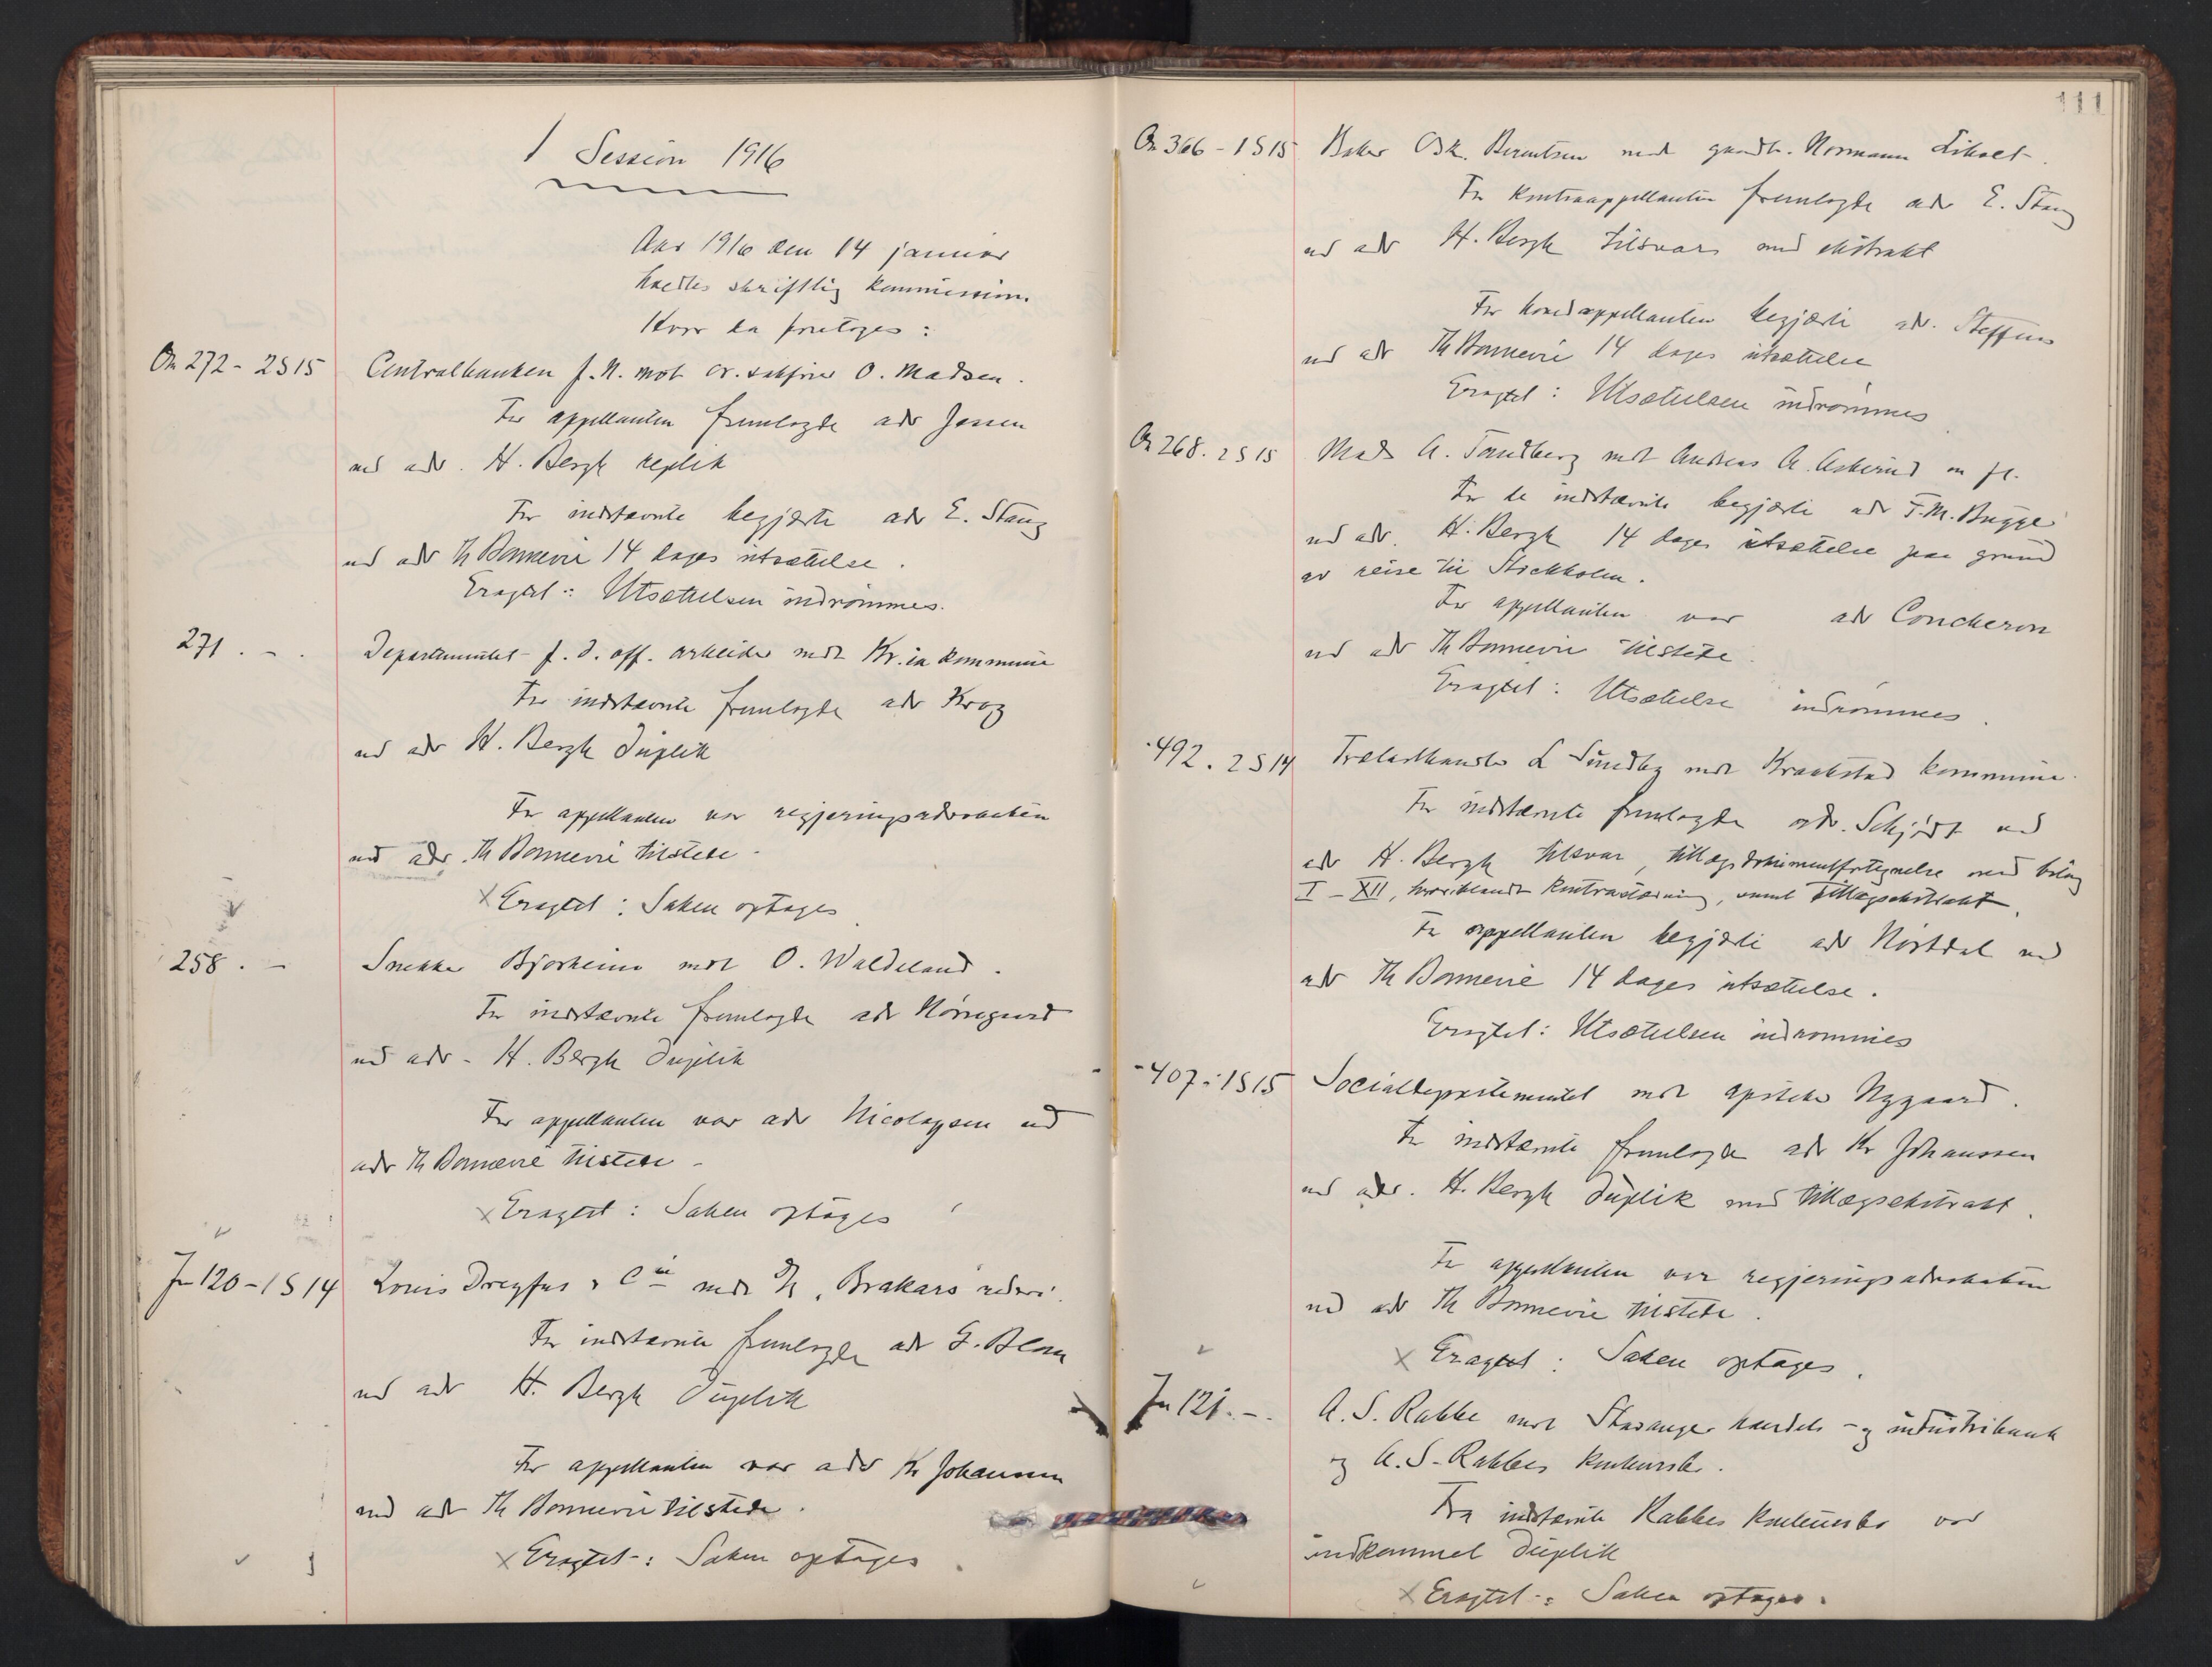 1 Session 1916
Aar 1916 den 14 januar
holdtes skriftlig kommission.
Hvor da foretoges:
On 272 - 2S15 Centralbanken f. N. mot Or. sakfører O. Madsen.
For appellanten fremlagde adv Jessen
ved adv. H. Bergh replik
For indstevnte begjærte adv E. Stang
ved adv Th Bonnevie 14 dages utsættelse.
Eragtet: Utsættelsen indrømmes.
271. - . Departementet f. d. off. arbeider mot Kr.ia kommune
For indstevnte fremlagde adv Krag
ved adv H. Bergh duplik
For appellanten var regjeringsadvokaten
ved adv. Th Bonnevie tilstede.
x Eragtet: Saken optages
258. - Snekker Bjorheim mot O. Waldeland.
For indstevnte fremlagde adv Nørregaard
ved adv. H. Bergh duplik
For appellanten var adv Nicolaysen ved
adv Th Bonnevie tilstede.
x Eragtet: Saken optages
Jn 120 - 1S14 Louis Dreyfus & Cie mot D/S "Brakars" rederi.
For indstevnte fremlagde adv G. Blom
ved adv H. Bergh duplik
For appellanten var adv Kr Johanssen
ved adv Th Bonnevie tilstede.
x Eragtet: Saken optages
111
On 366 - 1S15 Baker Osk. Berentsen mot gaardbr. Normann
For kontraappellanten fremlagde adv E. Stang
ved adv H. Bergh tilsvar med ekstrakt
For hovedappellanten begjærte adv. Steffens
ved adv Th Bonnevie 14 dages utsættelse
Eragtet: Utsættelsen indrømmes
On 268. 2S15 Mads A. Tandberg mot Andreas A. Askerud m fl.
For de indstevnte begjærte adv F. M. Bugge
ved adv. H. Bergh 14 dages utsættelse paa grund
av reise til Stockholm.
For appellanten var adv Coucheron
ved adv Th Bonnevie tilstede.
Eragtet: Utsættelse indrømmes.
- 492. 2S14 Trælasthandler L Sundby mot Kraakstad kommune.
For indstevnte fremlagde adv. Schjødt ved
adv H. Bergh tilsvar, tillægsdokumentfortegnelse med bilag
I - XII, hvoriblandt kontrastevning, samt tillægsekstrakt.
For appellanten begjærte adv Hostdal ved
adv Th Bonnevie 14 dages utsættelse.
Eragtet: Utsættelsen indrømmes
- 407 - 1S15 Socialdepartementet mot apoteker Nygaard.
For indstevnte fremlagde adv Kr Johanssen
ved adv. H. Bergh duplik med tillægsekstrakt.
For appellanten var regjeringsadvokaten
ved adv Th Bonnevie tilstede.
x Eragtet: Saken optages.
Jn 121. - . A. S. Rabbe mot Stavanger handels - og industribank
og A. S. Rabbes konkursbo.
Fra indstevnte Rabbes konkursbo var
indkommet duplik
x Eragtet: Saken optages.